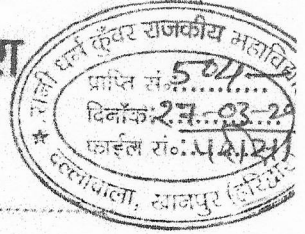 रानी धर्म कुँवर राजकीय महाविद्या
प्राप्ति सं०
दिनाँक: 27-03-20
फाईल सं०
दल्लावाला, खानपुर (हरिद्वार